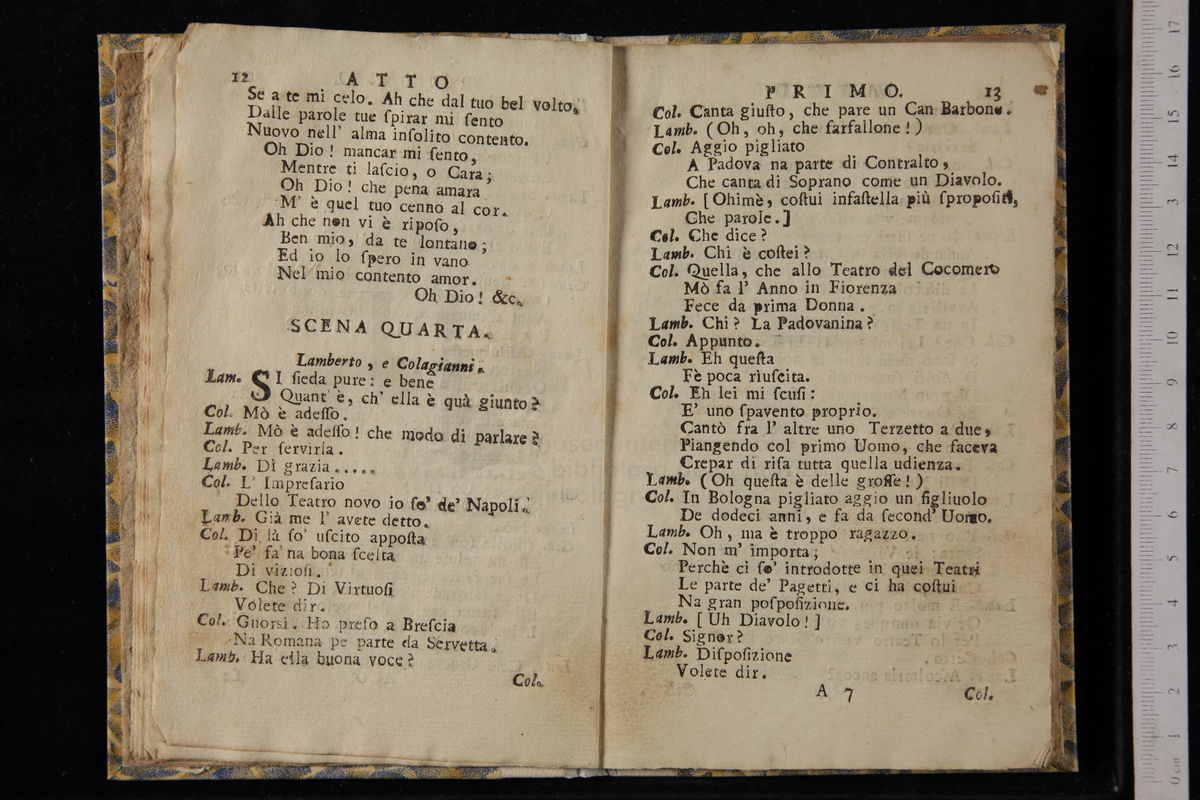 12 ATTO
Se a te mi celo. Ah che dal tuo bel volto,
Dalle parole tue ſpirar mi ſento
Nuovo nell' alma inſolito contento.
Oh Dio! mancar mi ſento,
Mentre ti laſcio, o Cara;
Oh Dio! che pena amara
M' è quel tuo cenno al cor.
Ah che non vi è ripoſo,
Ben mio, da te lontano;
Ed io lo ſpero in vano
Nel mio contento amor.
Oh Dio! &c.
SCENA QUARTA.
Lamberto, e Colagianni.
Lam. SI ſieda pure: e bene
Quant' è, ch' ella è quà giunto?
Col. Mò è adeſſo.
Lamb. Mò è adeſſo! che modo di parlare?
Col. Per ſervirla.
Lamb. Di grazia.....
Col. L' Impreſario
Dello Teatro novo io ſo' de' Napoli.
Lamb. Già me l' avete detto.
Col. Di là ſo' uſcito appoſta
Pe' fa' na bona ſcelta
Di vizioſi.
Lamb. Che? Di Virtuoſi
Volete dir.
Col. Gnorsì. Ho preſo a Breſcia
Na Romana pe parte da Servetta.
Lamb. Ha ella buona voce?
Col.
PRIMO. 13
Col. Canta giuſto, che pare un Can Barbone.
Lamb. (Oh, oh, che farfallone!)
Col. Aggio pigliato
A Padova na parte di Contralto,
Che canta di Soprano come un Diavolo.
Lamb. [Ohimè, coſtui infaſtella più ſpropoſiti,
Che parole.]
Col. Che dice?
Lamb. Chi è coſtei?
Col. Quella, che allo Teatro del Cocomero
Mò fa l' Anno in Fiorenza
Fece da prima Donna.
Lamb. Chi? La Padovanina?
Col. Appunto.
Lamb. Eh queſta
Fè poca riuſcita.
Col. Eh lei mi ſcuſi:
E' uno ſpavento proprio.
Cantò fra l' altre uno Terzetto a due,
Piangendo col primo Uomo, che faceva
Crepar di riſa tutta quella udienza.
Lamb. (Oh queſta è delle groſſe!)
Col. In Bologna pigliato aggio un figliuolo
De dodeci anni, e fa da ſecond' Uomo.
Lamb. Oh, ma è troppo ragazzo.
Col. Non m' importa;
Perchè ci ſo' introdotte in quei Teatri
Le parte de' Pagetti, e ci ha coſtui
Na gran poſpoſizione.
Lamb. [Uh Diavolo!]
Col. Signor?
Lamb. Diſpoſizione
Volete dir.
A 7 Col.